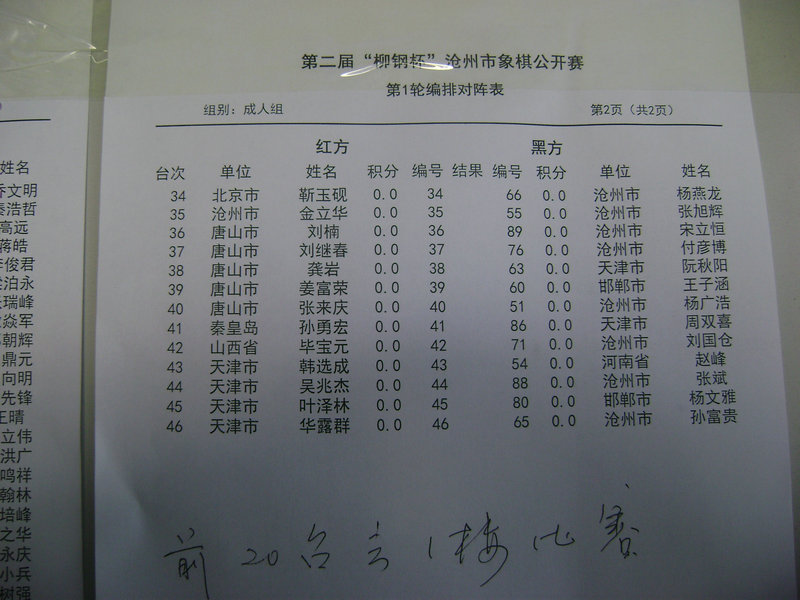 第二届“柳钢杯”沧州市象棋公开赛
第1轮编排对阵表
组别：成人组 第2页（共2页）
红方 黑方
台次 单位 姓名 积分 编号 结果 编号 积分 单位 姓名
34 北京市 靳玉砚 0.0 34 66 0.0 沧州市 杨燕龙
35 沧州市 金立华 0.0 35 55 0.0 沧州市 张旭辉
36 唐山市 刘楠 0.0 36 89 0.0 沧州市 宋立恒
37 唐山市 刘继春 0.0 37 76 0.0 沧州市 付彦博
38 唐山市 龚岩 0.0 38 63 0.0 天津市 阮秋阳
39 唐山市 姜富荣 0.0 39 60 0.0 邯郸市 王子涵
40 唐山市 张来庆 0.0 40 51 0.0 沧州市 杨广浩
41 秦皇岛 孙勇宏 0.0 41 86 0.0 天津市 周双喜
42 山西省 毕宝元 0.0 42 71 0.0 沧州市 刘国仓
43 天津市 韩选成 0.0 43 54 0.0 河南省 赵峰
44 天津市 吴兆杰 0.0 44 88 0.0 沧州市 张斌
45 天津市 叶泽林 0.0 45 80 0.0 邯郸市 杨文雅
46 天津市 华露群 0.0 46 65 0.0 沧州市 孙富贵
前20台去1楼比赛
姓名
乔文明
秦浩哲
高远
蒋皓
李俊君
泊永
瑞峰
焱军
朝辉
鼎元
向明
先锋
王晴
立伟
洪广
鸣祥
翰林
培峰
之华
永庆
小兵
树强